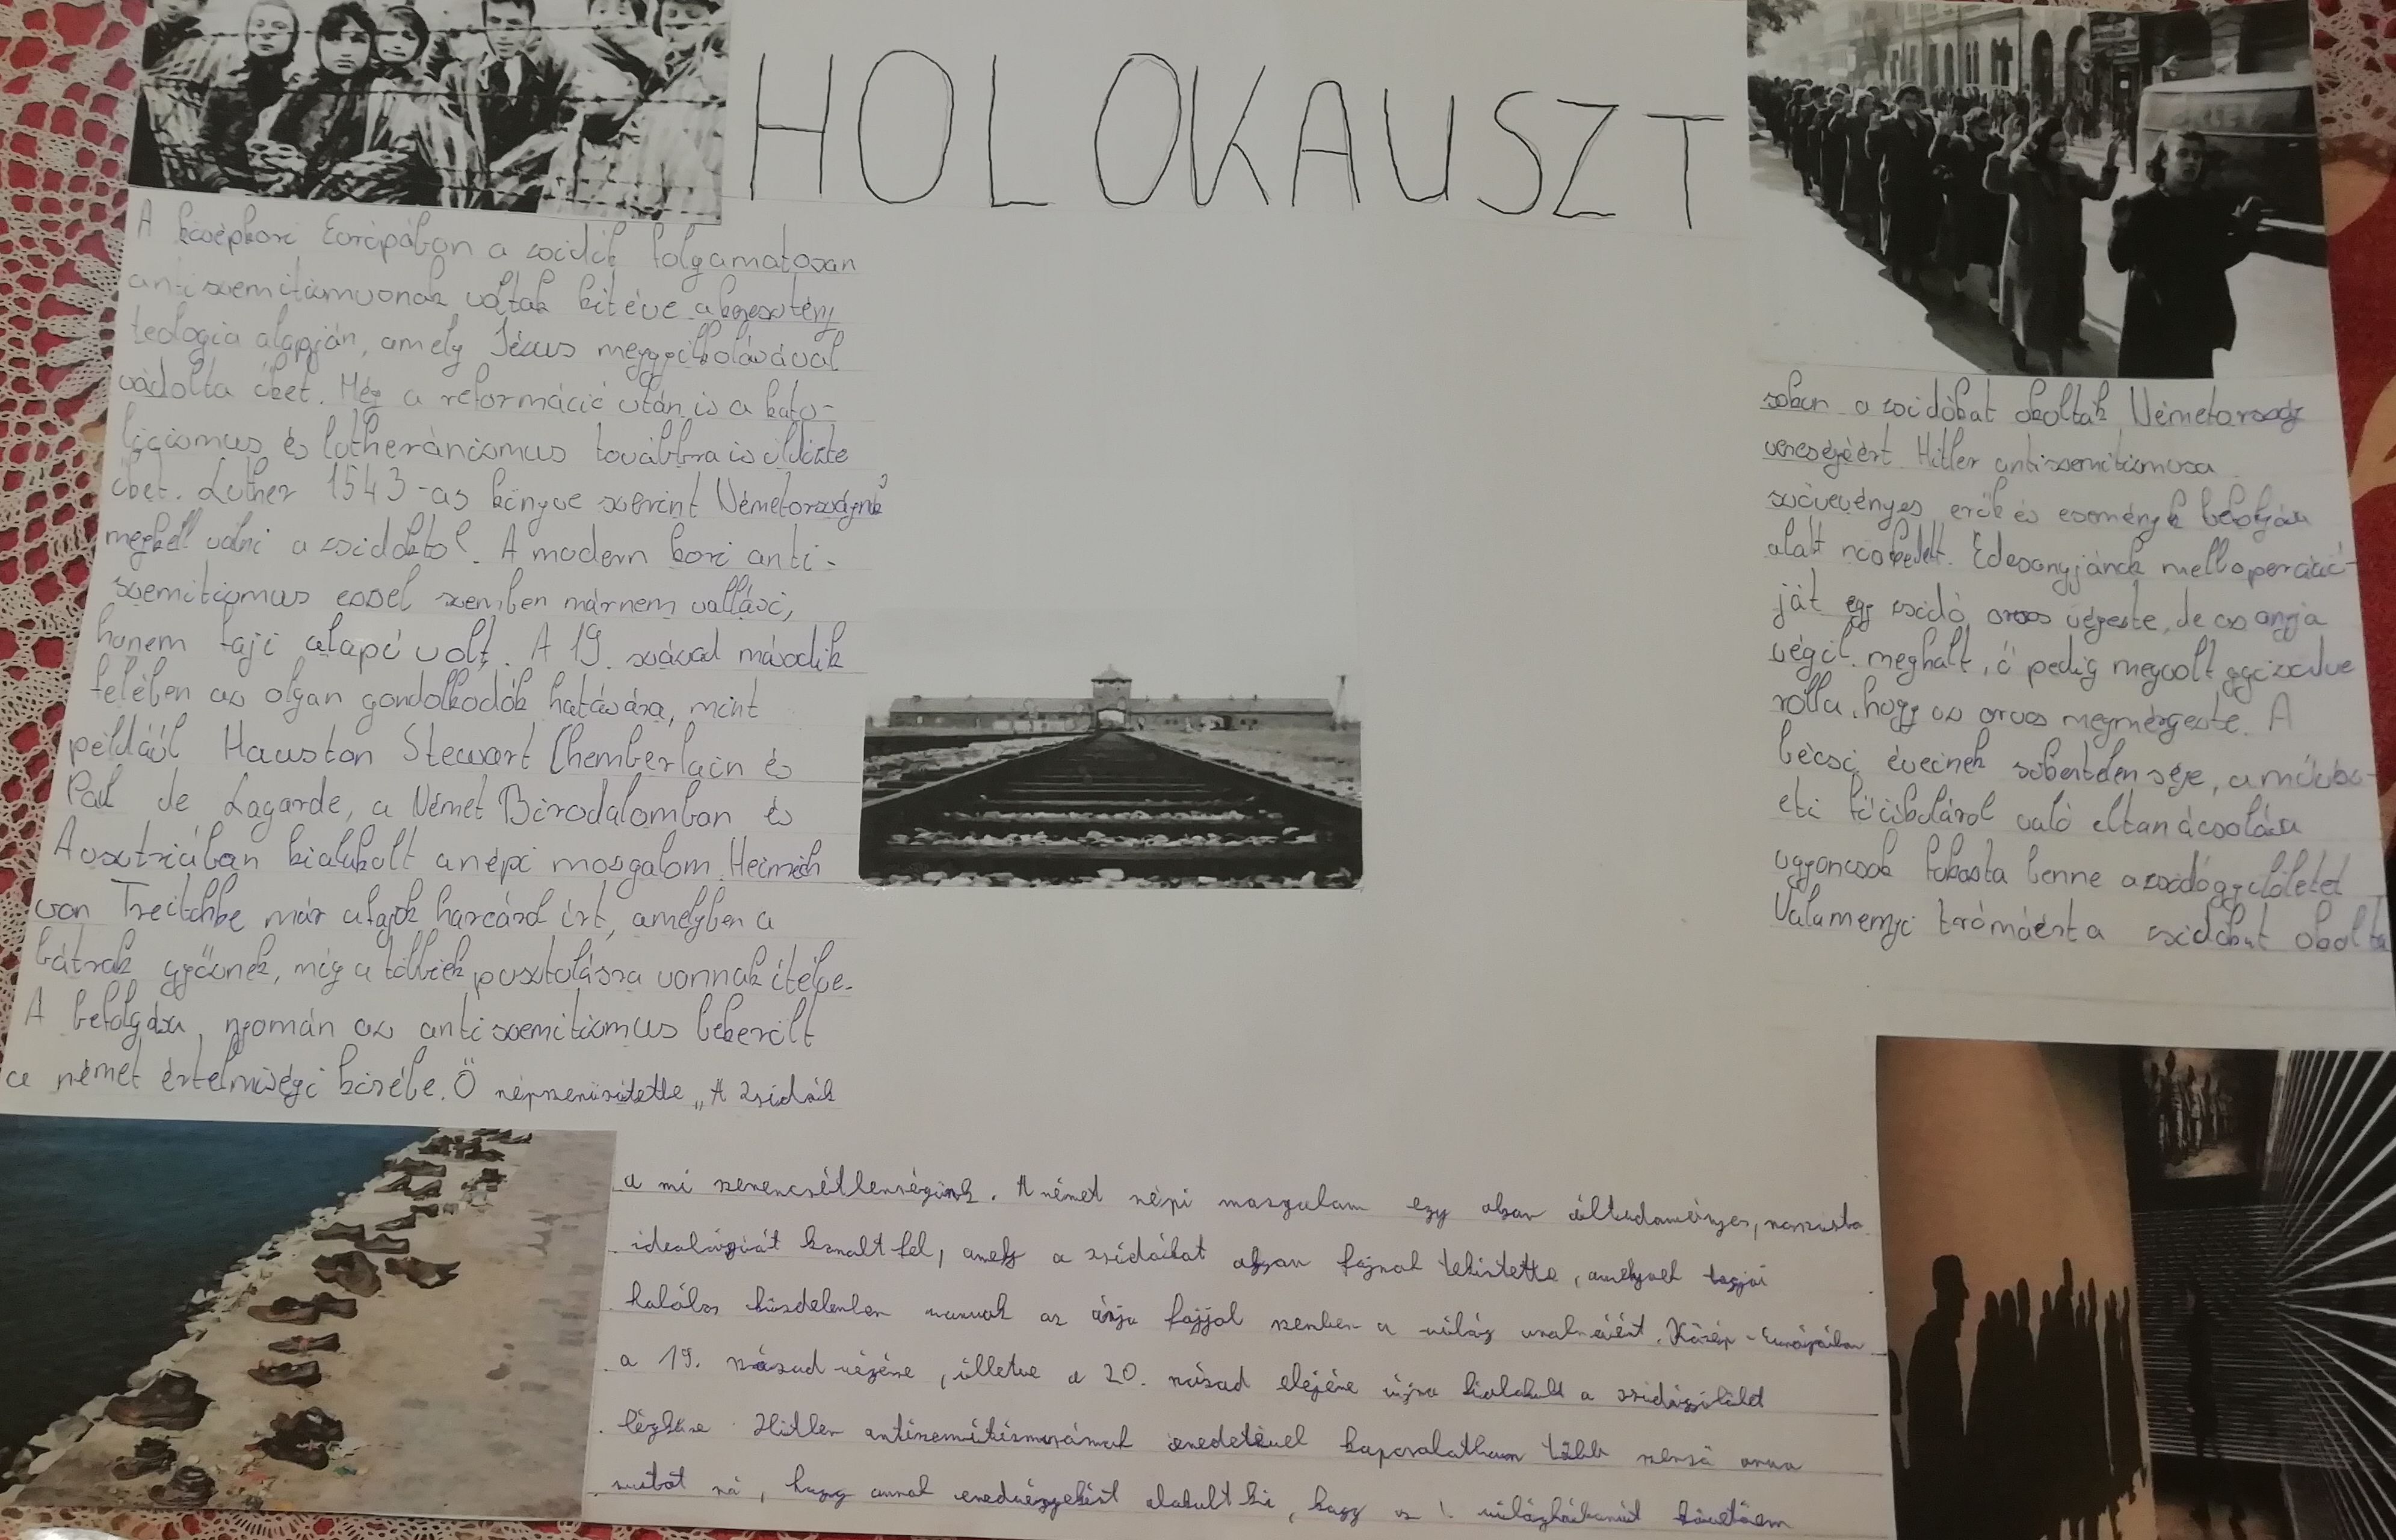 HOLOKAUSZT
A középkori Európában a zsidók folyamatosan
antiszemitizmusnak voltak kitéve a keresztény
teologia alapján, amely Jézus meggyilkolásával
vádolta őket. Még a reformáció után is a kato-
licizmus és lutheránizmus továbbra is üldözte
őket. Luther 1543-as könyve szerint Németországnak
meg kell válni a zsidóktól. A modern kori anti-
szemitizmus ezzel szemben már nem vallási,
hanem faji alapú volt. A 19. század második
felében az olyan gondolkodók hatására, mint
például Hauston Stewart Chemberlain és
Paul de Lagarde, a Német Birodalomban és
Ausztriában kialakult a népi mozgalom. Heinrich
von Treitchke már a fajok harcáról írt, amelyben a
bátrak győznek, míg a többiek pusztulásra vannak ítélve.
A befolyása nyomán az antiszemitizmus bekerült
a német értelmiségi körébe. Ő népszerűsítette „A zsidók
a mi szerencsétlenségünk. A német népi mozgalom egy olyan áltudományos, rasszista
ideológiát karolt fel, amely a zsidókat olyan fajnak tekintette, amelynek tagjai
halálos küzdelemben vannak az árja fajjal szemben a világ uralmáért. Közép-Európában
a 19. század végére, illetve a 20. század elejére újra kialakult a zsidógyűlölet
légköre. Hitler antiszemitizmusának eredetével kapcsolatban több szerző arra
mutat rá, hogy annak eredményeként alakult ki, hogy az 1. világháborút követően
sokan a zsidókat okolták Németország
vereségéért. Hitler antiszemitizmusa
szövevényes erők és események befolyása
alatt növekedett. Édesanyjának melloperáció-
ját egy zsidó orvos végezte, de az anyja
végül meghalt, ő pedig meg volt győződve
rólla, hogy az orvos megmérgezte. A
bécsi éveinek sikertelensége, a művész-
eti főiskoláról való eltanácsolása
ugyancsak fokozta benne a zsidógyűlöletet
Valamennyi taómáért a zsidókat okolta